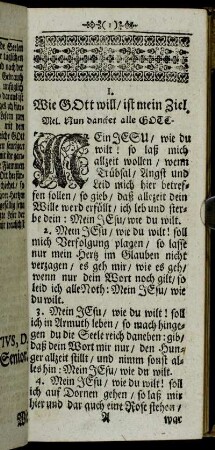 ( 1 )
I.
Wie GOtt will / ist mein Ziel.
Mel. Nun dancket alle GOTT.
MEin JESU / wie du
wilt! so laß mich
allzeit wollen / wenn
Trübsal / Angst und
Leid mich hier betref-
fen sollen / so gieb / daß allezeit dein
Wille werd erfüllt / ich leb und ster-
be dein: Mein JEsu / wie du wilt.
2. Mein JEsu / wie du wilt! soll
mich Verfolgung plagen / so lasse
nur mein Hertz im Glauben nicht
verzagen / es geh mir / wie es geh /
wenn nur dein Wort noch gilt / so
leid ich alle Noth: Mein JEsu / wie
du wilt.
3. Mein JEsu / wie du wilt! soll
ich in Armuth leben / so mach hinge-
gen du die Seele reich daneben: gib /
daß dein Wort mir nur / den Hun-
ger allzeit stillt / und nimm sonst al-
les hin: Mein JEsu / wie du wilt.
4. Mein JEsu / wie du wilt! soll
ich auf Dornen gehen / so laß mir
hier und dar auch eine Rose stehen /
A